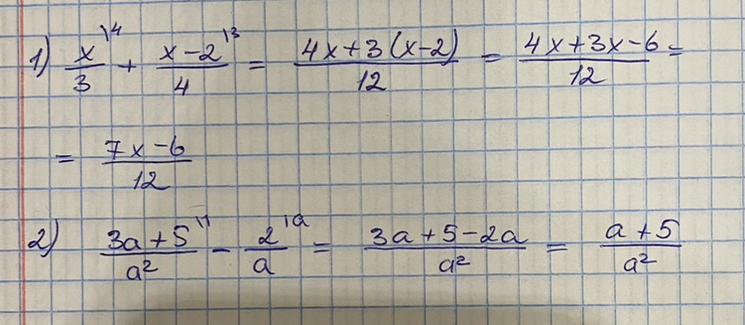 1) x/3 \4 + (x-2)/4 \3 = (4x+3(x-2))/12 = (4x+3x-6)/12 =
= (7x-6)/12
2) (3a+5)/a² \1 - 2/a \a = (3a+5-2a)/a² = (a+5)/a²